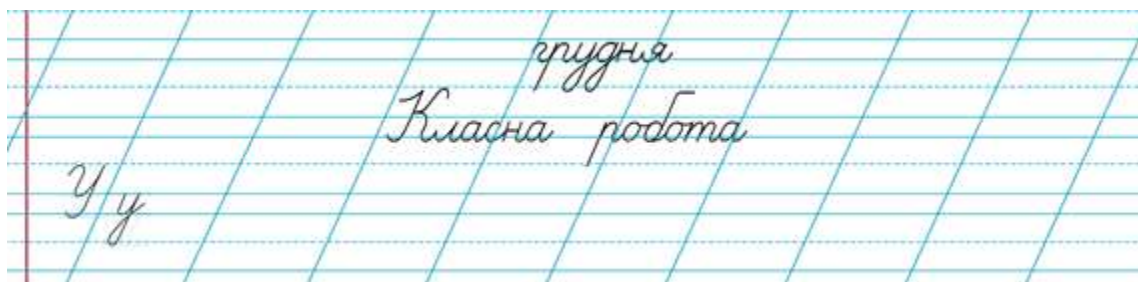 грудня
Класна робота
У у